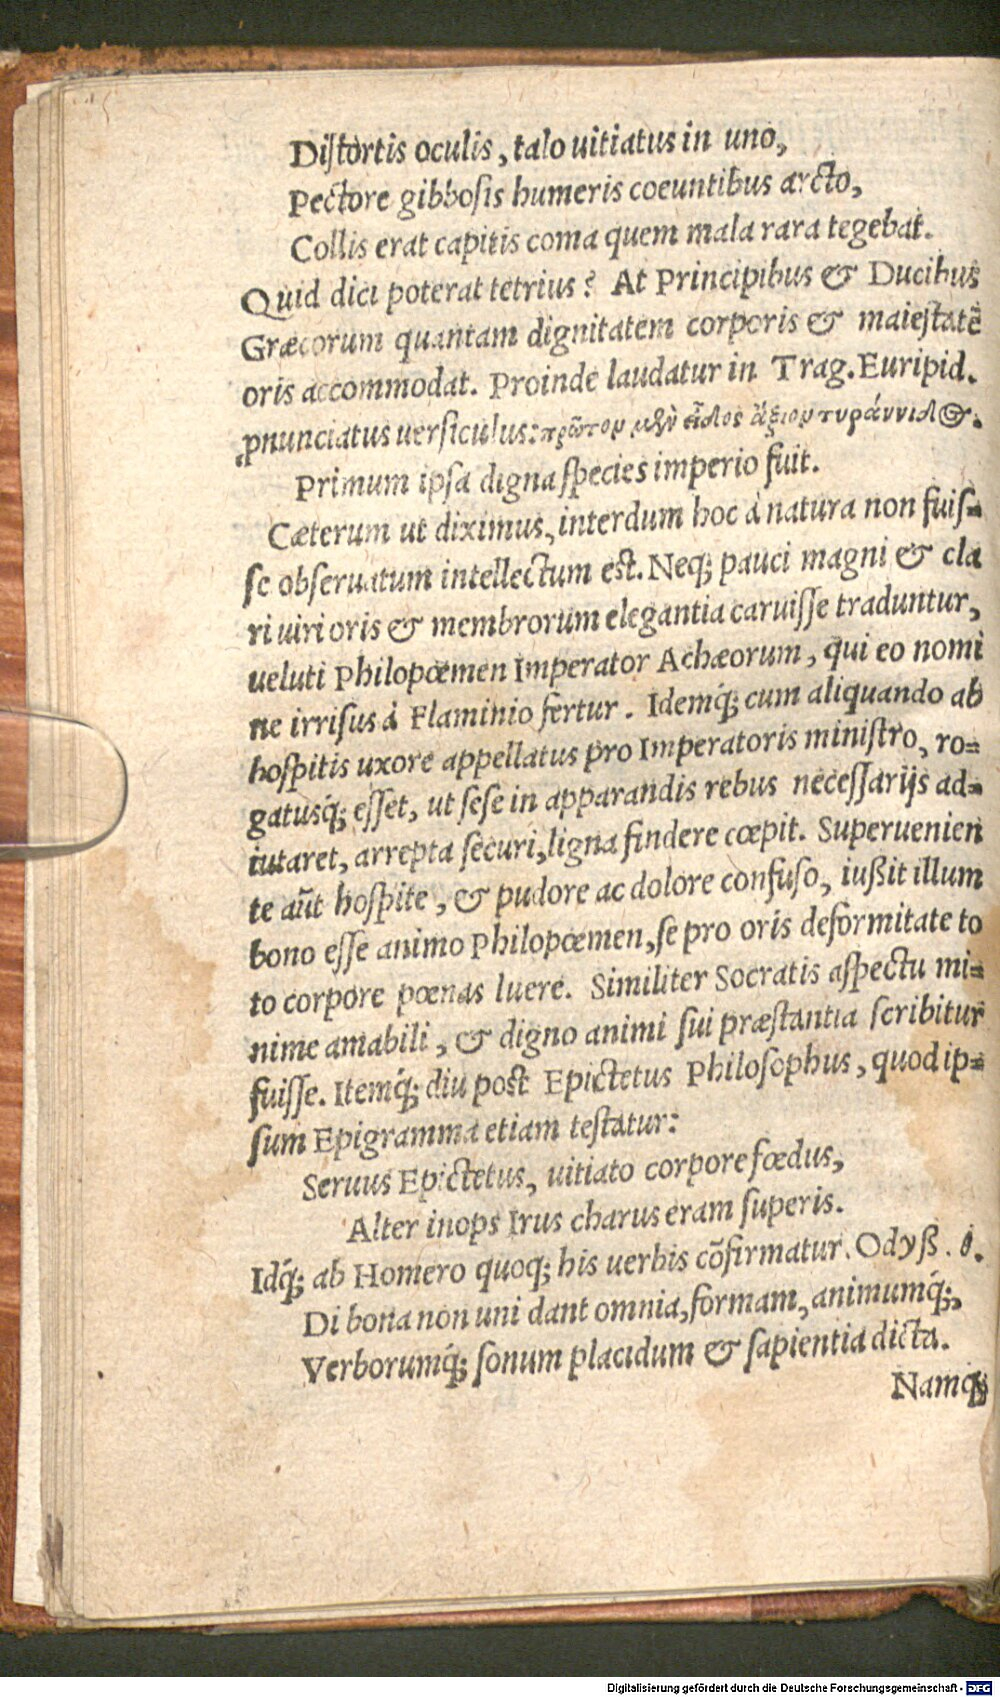 Distortis oculis, talo uitiatus in uno,
Pectore gibbosis humeris coeuntibus arcto,
Collis erat capitis coma quem mala rara tegebat.
Quid dici poterat tetrius? At Principibus & Ducibus
Græcorum quantam dignitatem corporis & maiestatẽ
oris accommodat. Proinde laudatur in Trag. Euripid.
ꝓnunciatus uersiculus: πρῶτον μὲν εἶδος ἄξιον τυράννιδος.
Primum ipsa digna species imperio fuit.
Cæterum ut diximus, interdum hoc à natura non fuis=
se obseruatum intellectum est. Neq; pauci magni & cla
ri uiri oris & membrorum elegantia caruisse traduntur,
ueluti Philopœmen Imperator Achæorum, qui eo nomi
ne irrisus à Flaminio fertur. Idemq́; cum aliquando ab
hospitis uxore appellatus pro Imperatoris ministro, ro=
gatusq́; esset, ut sese in apparandis rebus necessarijs ad=
iutaret, arrepta securi, ligna findere cœpit. Superuenien
te aũt hospite, & pudore ac dolore confuso, iußit illum
bono esse animo Philopœmen, se pro oris deformitate to
to corpore pœnas luere. Similiter Socratis aspectu mi=
nime amabili, & digno animi sui præstantia scribitur
fuisse. Itemq́; diu post Epictetus Philosophus, quod ip=
sum Epigramma etiam testatur:
Seruus Epictetus, uitiato corpore fœdus,
Alter inops Irus charus eram superis.
Idq́; ab Homero quoq; his uerbis cõfirmatur. Odyß. θ.
Di bona non uni dant omnia, formam, animumq́;,
Verborumq́; sonum placidum & sapientia dicta.
Namq;
Digitalisierung gefördert durch die Deutsche Forschungsgemeinschaft - DFG